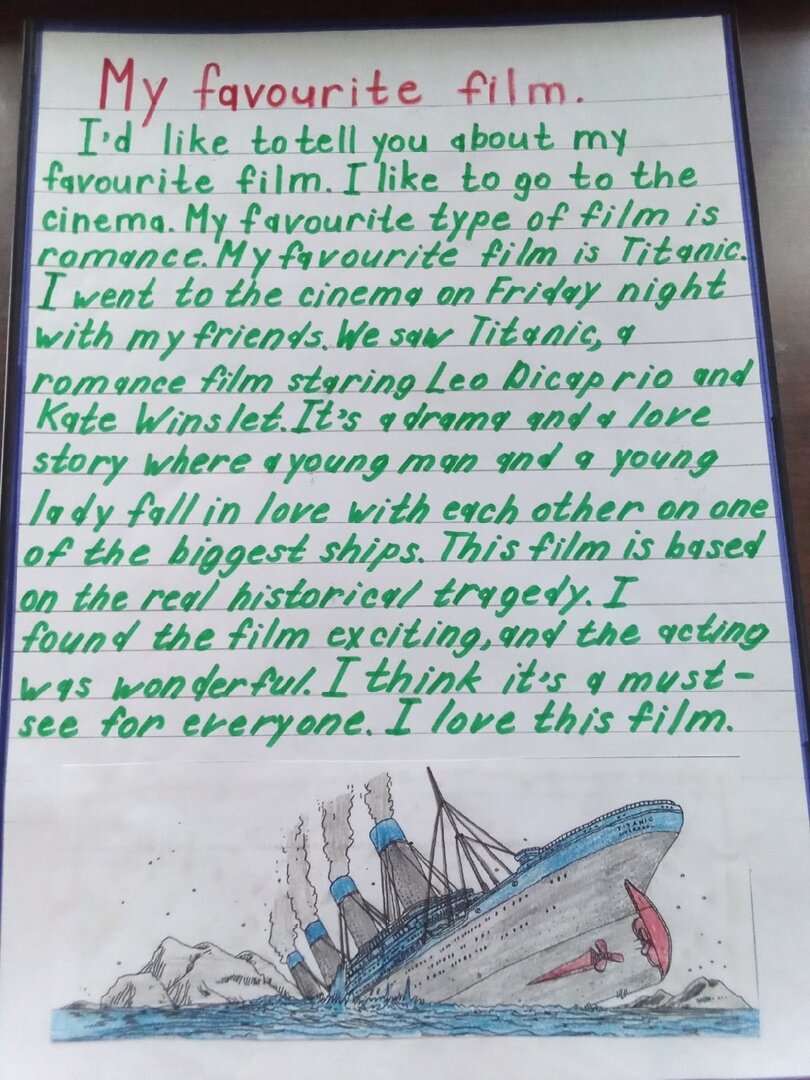 My favourite film.
I'd like to tell you about my
favourite film. I like to go to the
cinema. My favourite type of film is
romance. My favourite film is Titanic.
I went to the cinema on Friday night
with my friends. We saw Titanic, a
romance film staring Leo Dicaprio and
Kate Winslet. It's a drama and a love
story where a young man and a young
lady fall in love with each other on one
of the biggest ships. This film is based
on the real historical tragedy. I
found the film exciting, and the acting
was wonderful. I think it's a must-
see for everyone. I love this film.
TITANIC
LIVERPOOL